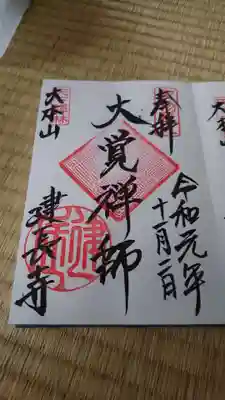 奉拝
令和元年
十一月二日
大覚禅師
大本山
建長寺